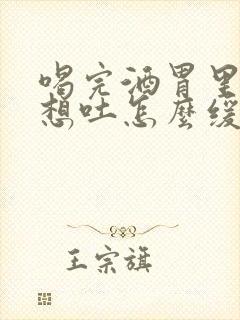 喝完酒胃里
想吐怎麼缓
王宗旗